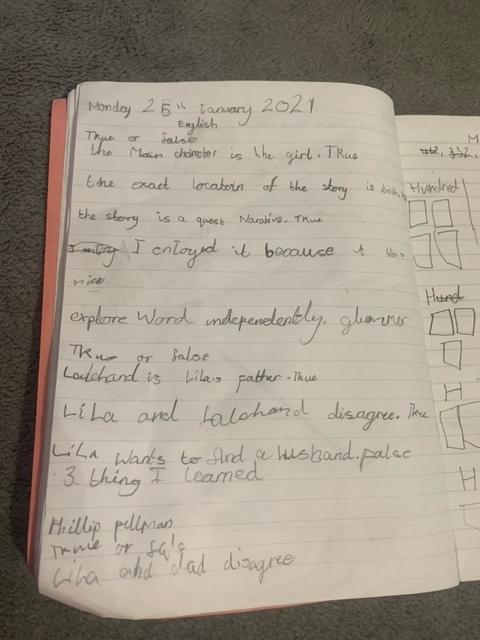 Monday 25th January 2021
English
True or false
the Main character is the girl. True
the exact locatoin of the story is
the story is a quest Narative. True
I enloyed it because it was
nice
explore Word independently. glummer
True or false
Lalchand is Lila's father. True
LiLa and Lalchand disagree. True
LiLa wants to find a husband. palse
3 thing I learned
Phillip pullman
True or
Lila and dad disagree
M
332,
Hundred
Hund
H
H